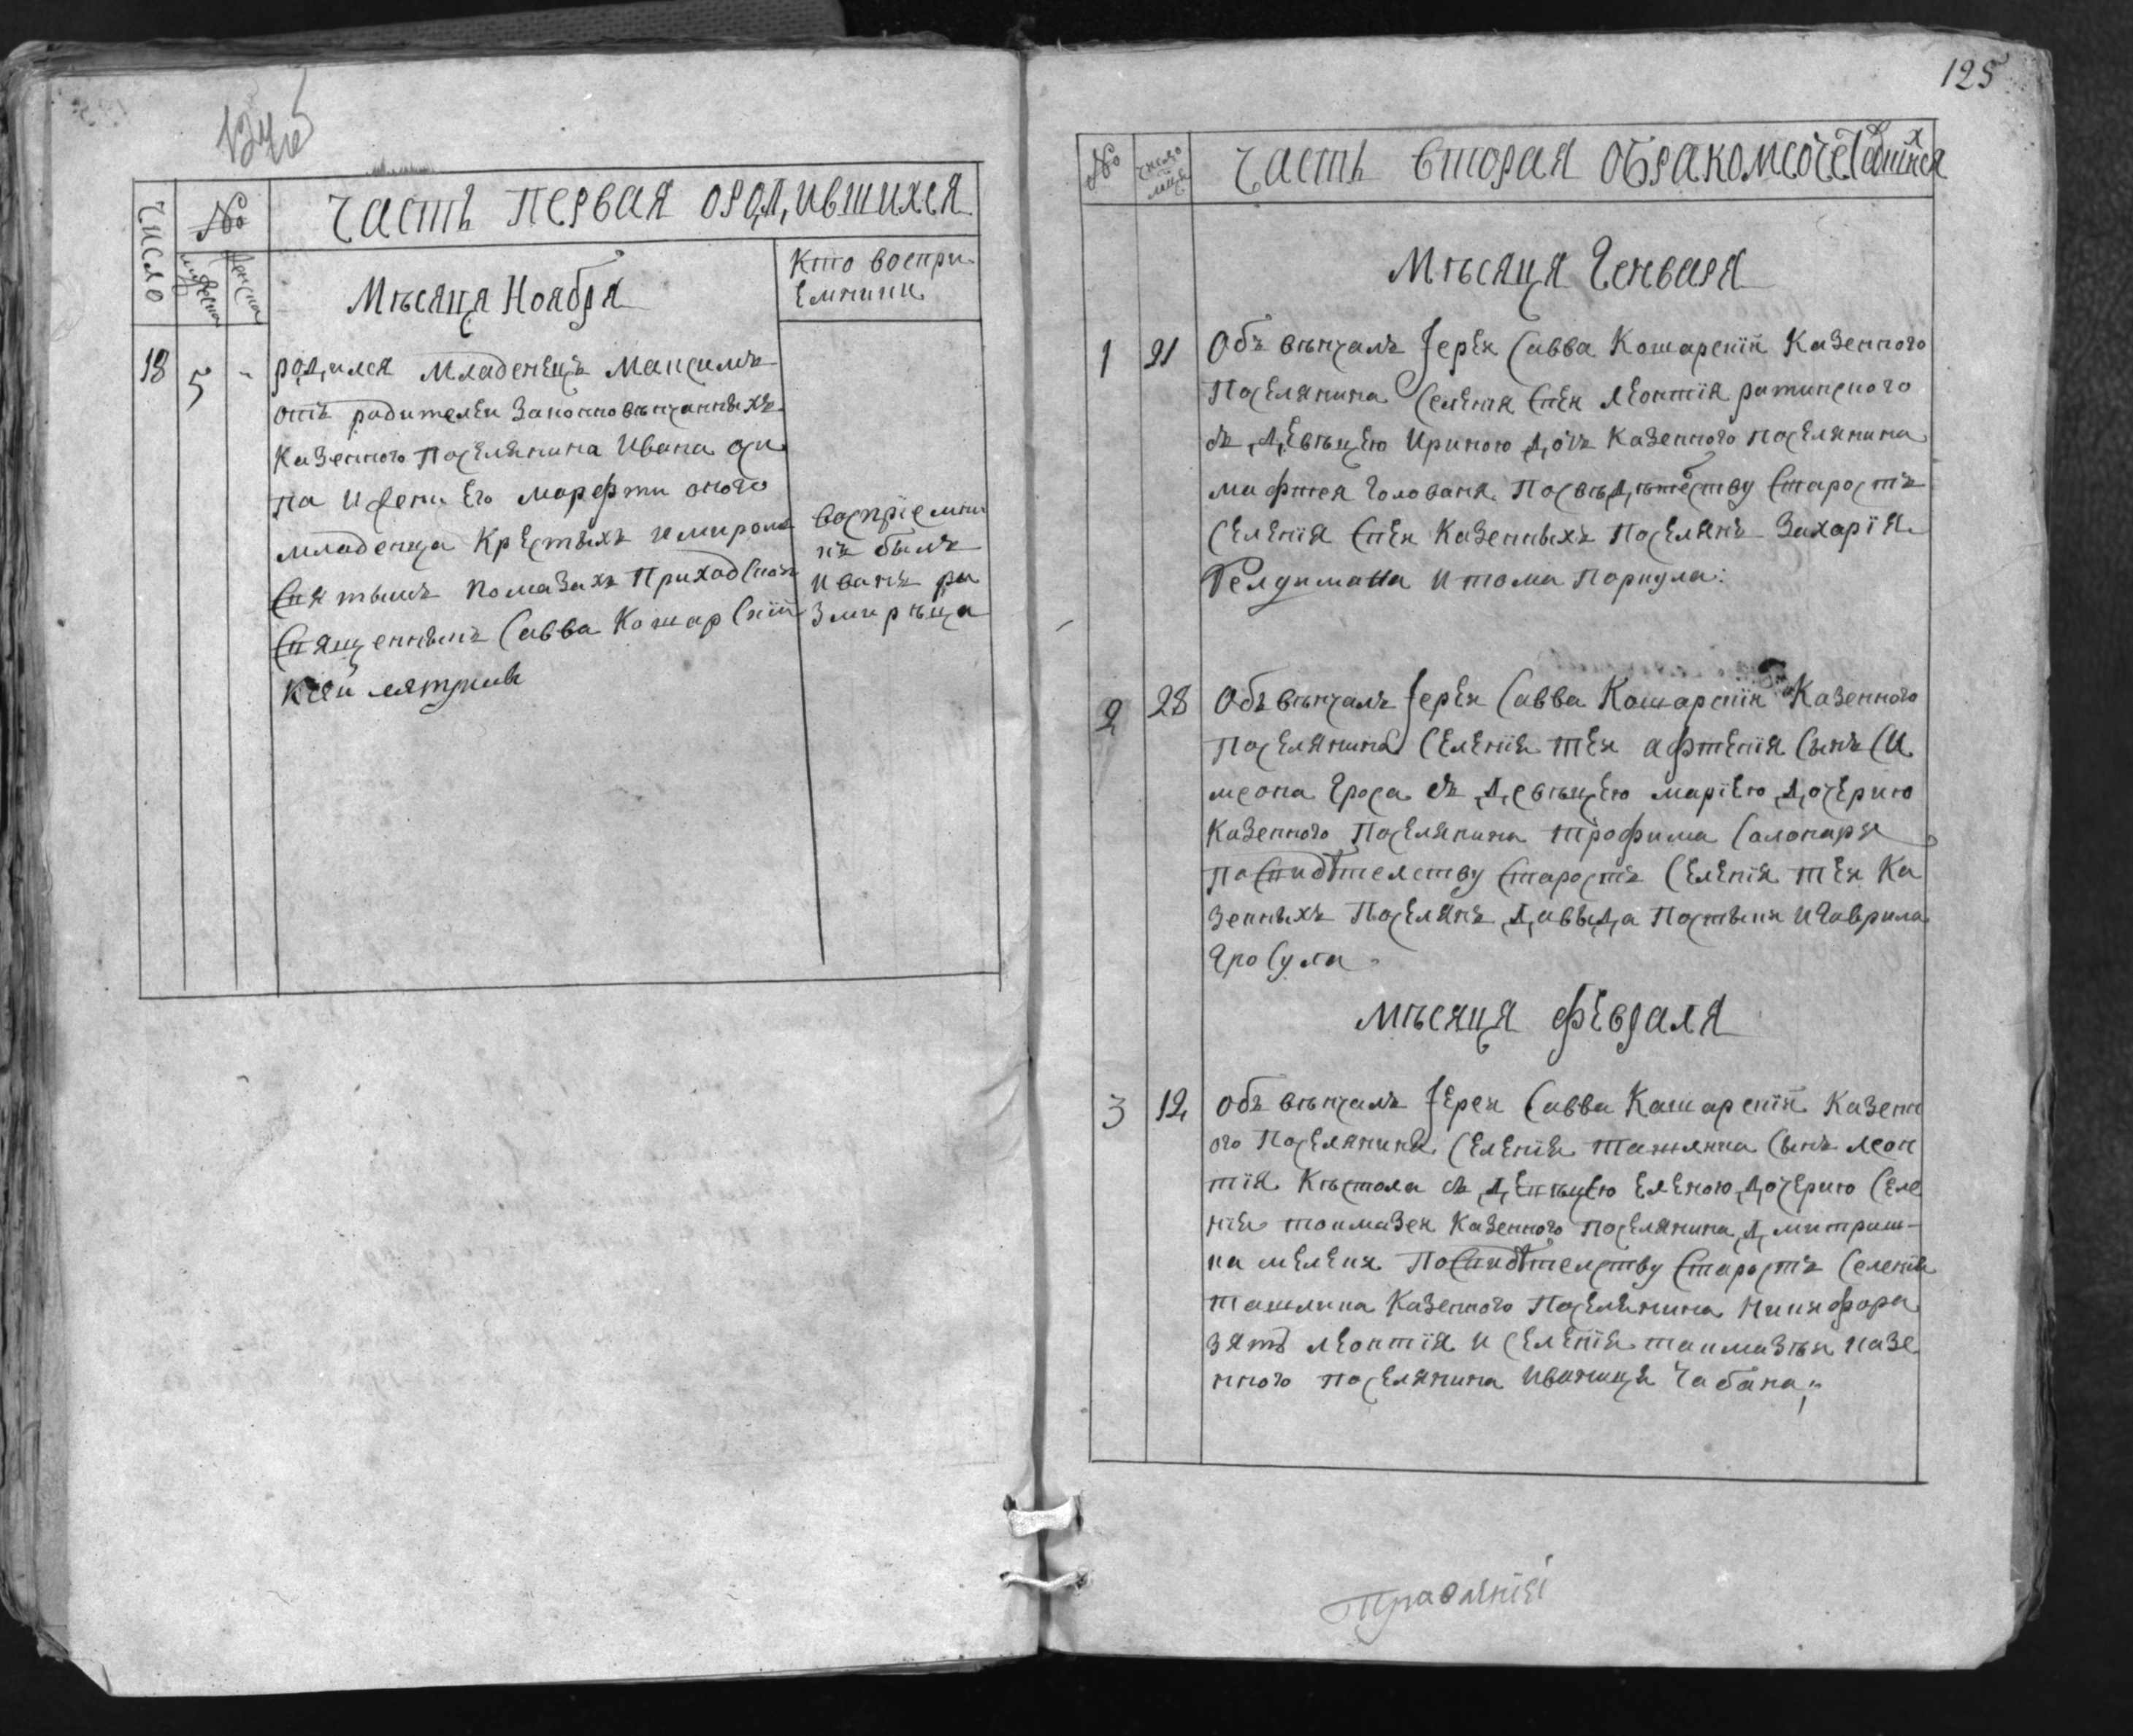 Число
№
мужеска
женска
Часть первая ородившихся
Мѣсяца Ноября
Кто воспри
Емники
18
5
-
родился Младенецъ Максимъ
отъ родителей Законновѣнчанныхъ
Казенного Поселянина Ивана
на И жени Его Марфти оного
младенца Крестихъ Имиромъ
Святымъ помазахъ Приход
Священникъ Савва Кошарскій
воспріемни
къ былъ
Иванъ
125
№
число
мца
Часть вторая обракомсочетавшихся
Мѣсяца Генваря
1
21
Объ вѣнчалъ Іерей Савва Кошарскій Казенного
Поселянина Селенія Спеи Леонтія ратинского
съ Девѣцею Ириною Дочъ Казенного поселянина
Мафтея Голованя Посвѣдѣтелству Старостъ
Селенія Спеи Казенныхъ Поселянъ Захарія
Гелдимана И тома Поркула:
2
28
Объ вѣнчалъ Іерей Савва Кошарскій Казенного
поселянина Селенія теи афтенія Сынъ Си
меона Гроса съ Девѣцею маріею Дочерию
Казенного Поселянина трофима Солонаря
посвидѣтелству Старостъ Селенія теи Ка
зенныхъ Поселянъ Давыда Постики И Гаврила
Гросула
мѣсяца февраля
3
12
объ вѣнчалъ Іереи Савва Кашарскій Казенн
ого Поселянина Селенія ташлика Сынъ леон
тія Кѣстола съ Девѣцею Еленою Дочерию Селе
нія токмазеи Казенного поселянина Дмитраш-
ка мелеки Посвидѣтелству Старостъ Селенія
ташлика Казенного Поселянина Никифора
зятъ леонтія и Селенія токмазѣи казе
нного поселянина Иваница Чабана;